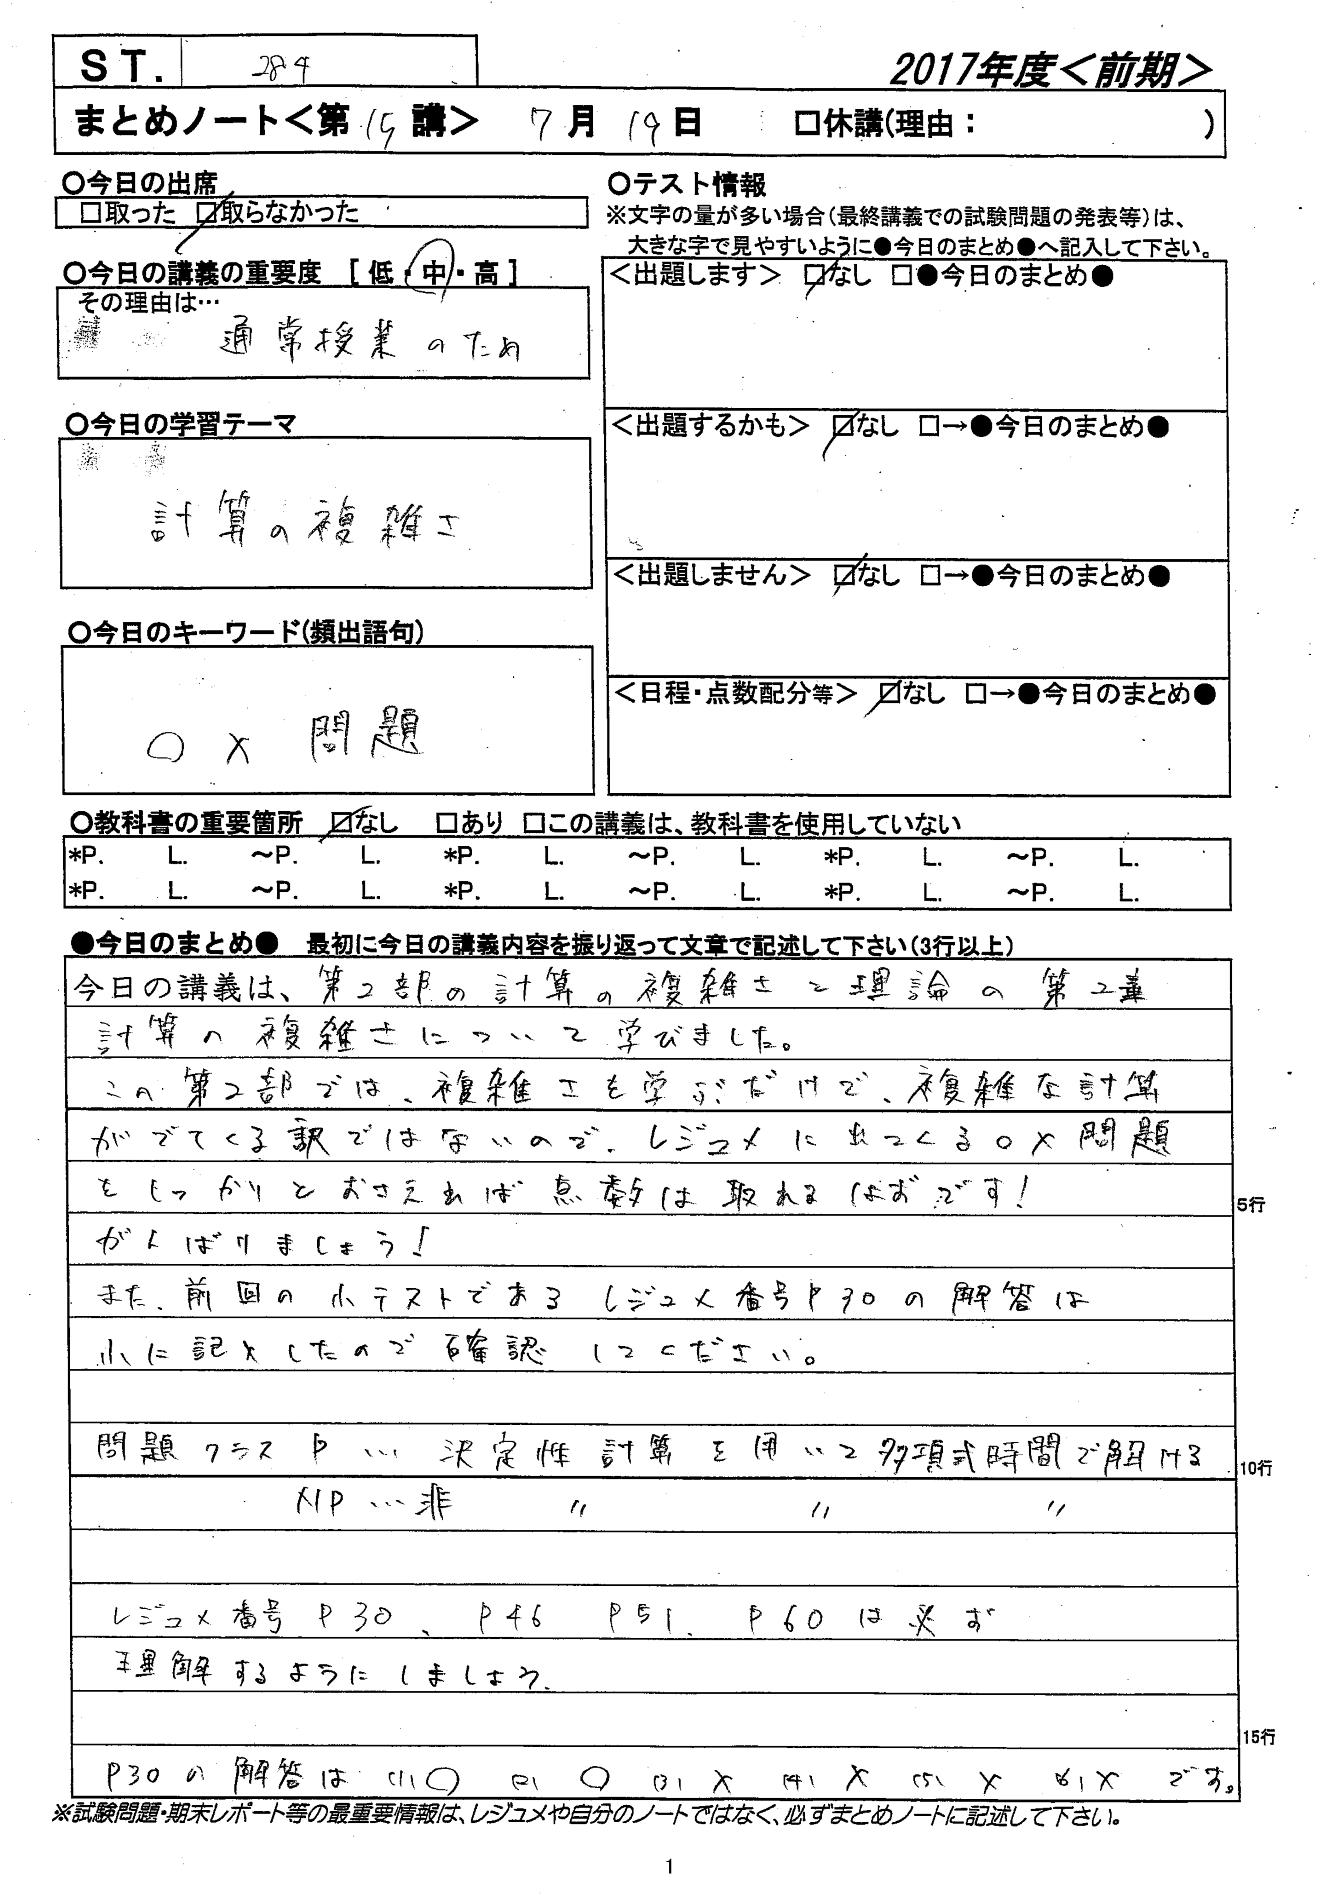 ST. 284
2017年度<前期>
まとめノート<第15講> 7月19日 □休講(理由: )
○今日の出席
□取った ☑取らなかった
○今日の講義の重要度 [低・中・高]
その理由は…
通常授業のため
○今日の学習テーマ
計算の複雑さ
○今日のキーワード(頻出語句)
○×問題
○テスト情報
※文字の量が多い場合(最終講義での試験問題の発表等)は、
大きな字で見やすいように●今日のまとめ●へ記入して下さい。
<出題します> ☑なし □●今日のまとめ●
<出題するかも> ☑なし □→●今日のまとめ●
<出題しません> ☑なし □→●今日のまとめ●
<日程・点数配分等> ☑なし □→●今日のまとめ●
○教科書の重要箇所 ☑なし □あり □この講義は、教科書を使用していない
*P. L. ~P. L. *P. L. ~P. L. *P. L. ~P. L.
*P. L. ~P. L. *P. L. ~P. L. *P. L. ~P. L.
●今日のまとめ● 最初に今日の講義内容を振り返って文章で記述して下さい(3行以上)
今日の講義は、第2部の計算の複雑さと理論の第2章
計算の複雑さについて学びました。
この第2部では、複雑さを学ぶだけで、複雑な計算
がでてくる訳ではないので、レジュメに出てくる○×問題
をしっかりとおさえれば点数は取れるはずです!
5行
がんばりましょう!
また、前回の小テストであるレジュメ番号P30の解答は
下に記入したので確認してください。
問題クラスP…決定性計算を用いて多項式時間で解ける
10行
NP…非 〃 〃 〃
レジュメ番号P30、P46 P51、P60は必ず
理解するようにしましょう。
15行
P30の解答は(1)○ (2)○ (3)× (4)× (5)× (6)×です。
※試験問題・期末レポート等の最重要情報は、レジュメや自分のノートではなく、必ずまとめノートに記述して下さい。
1